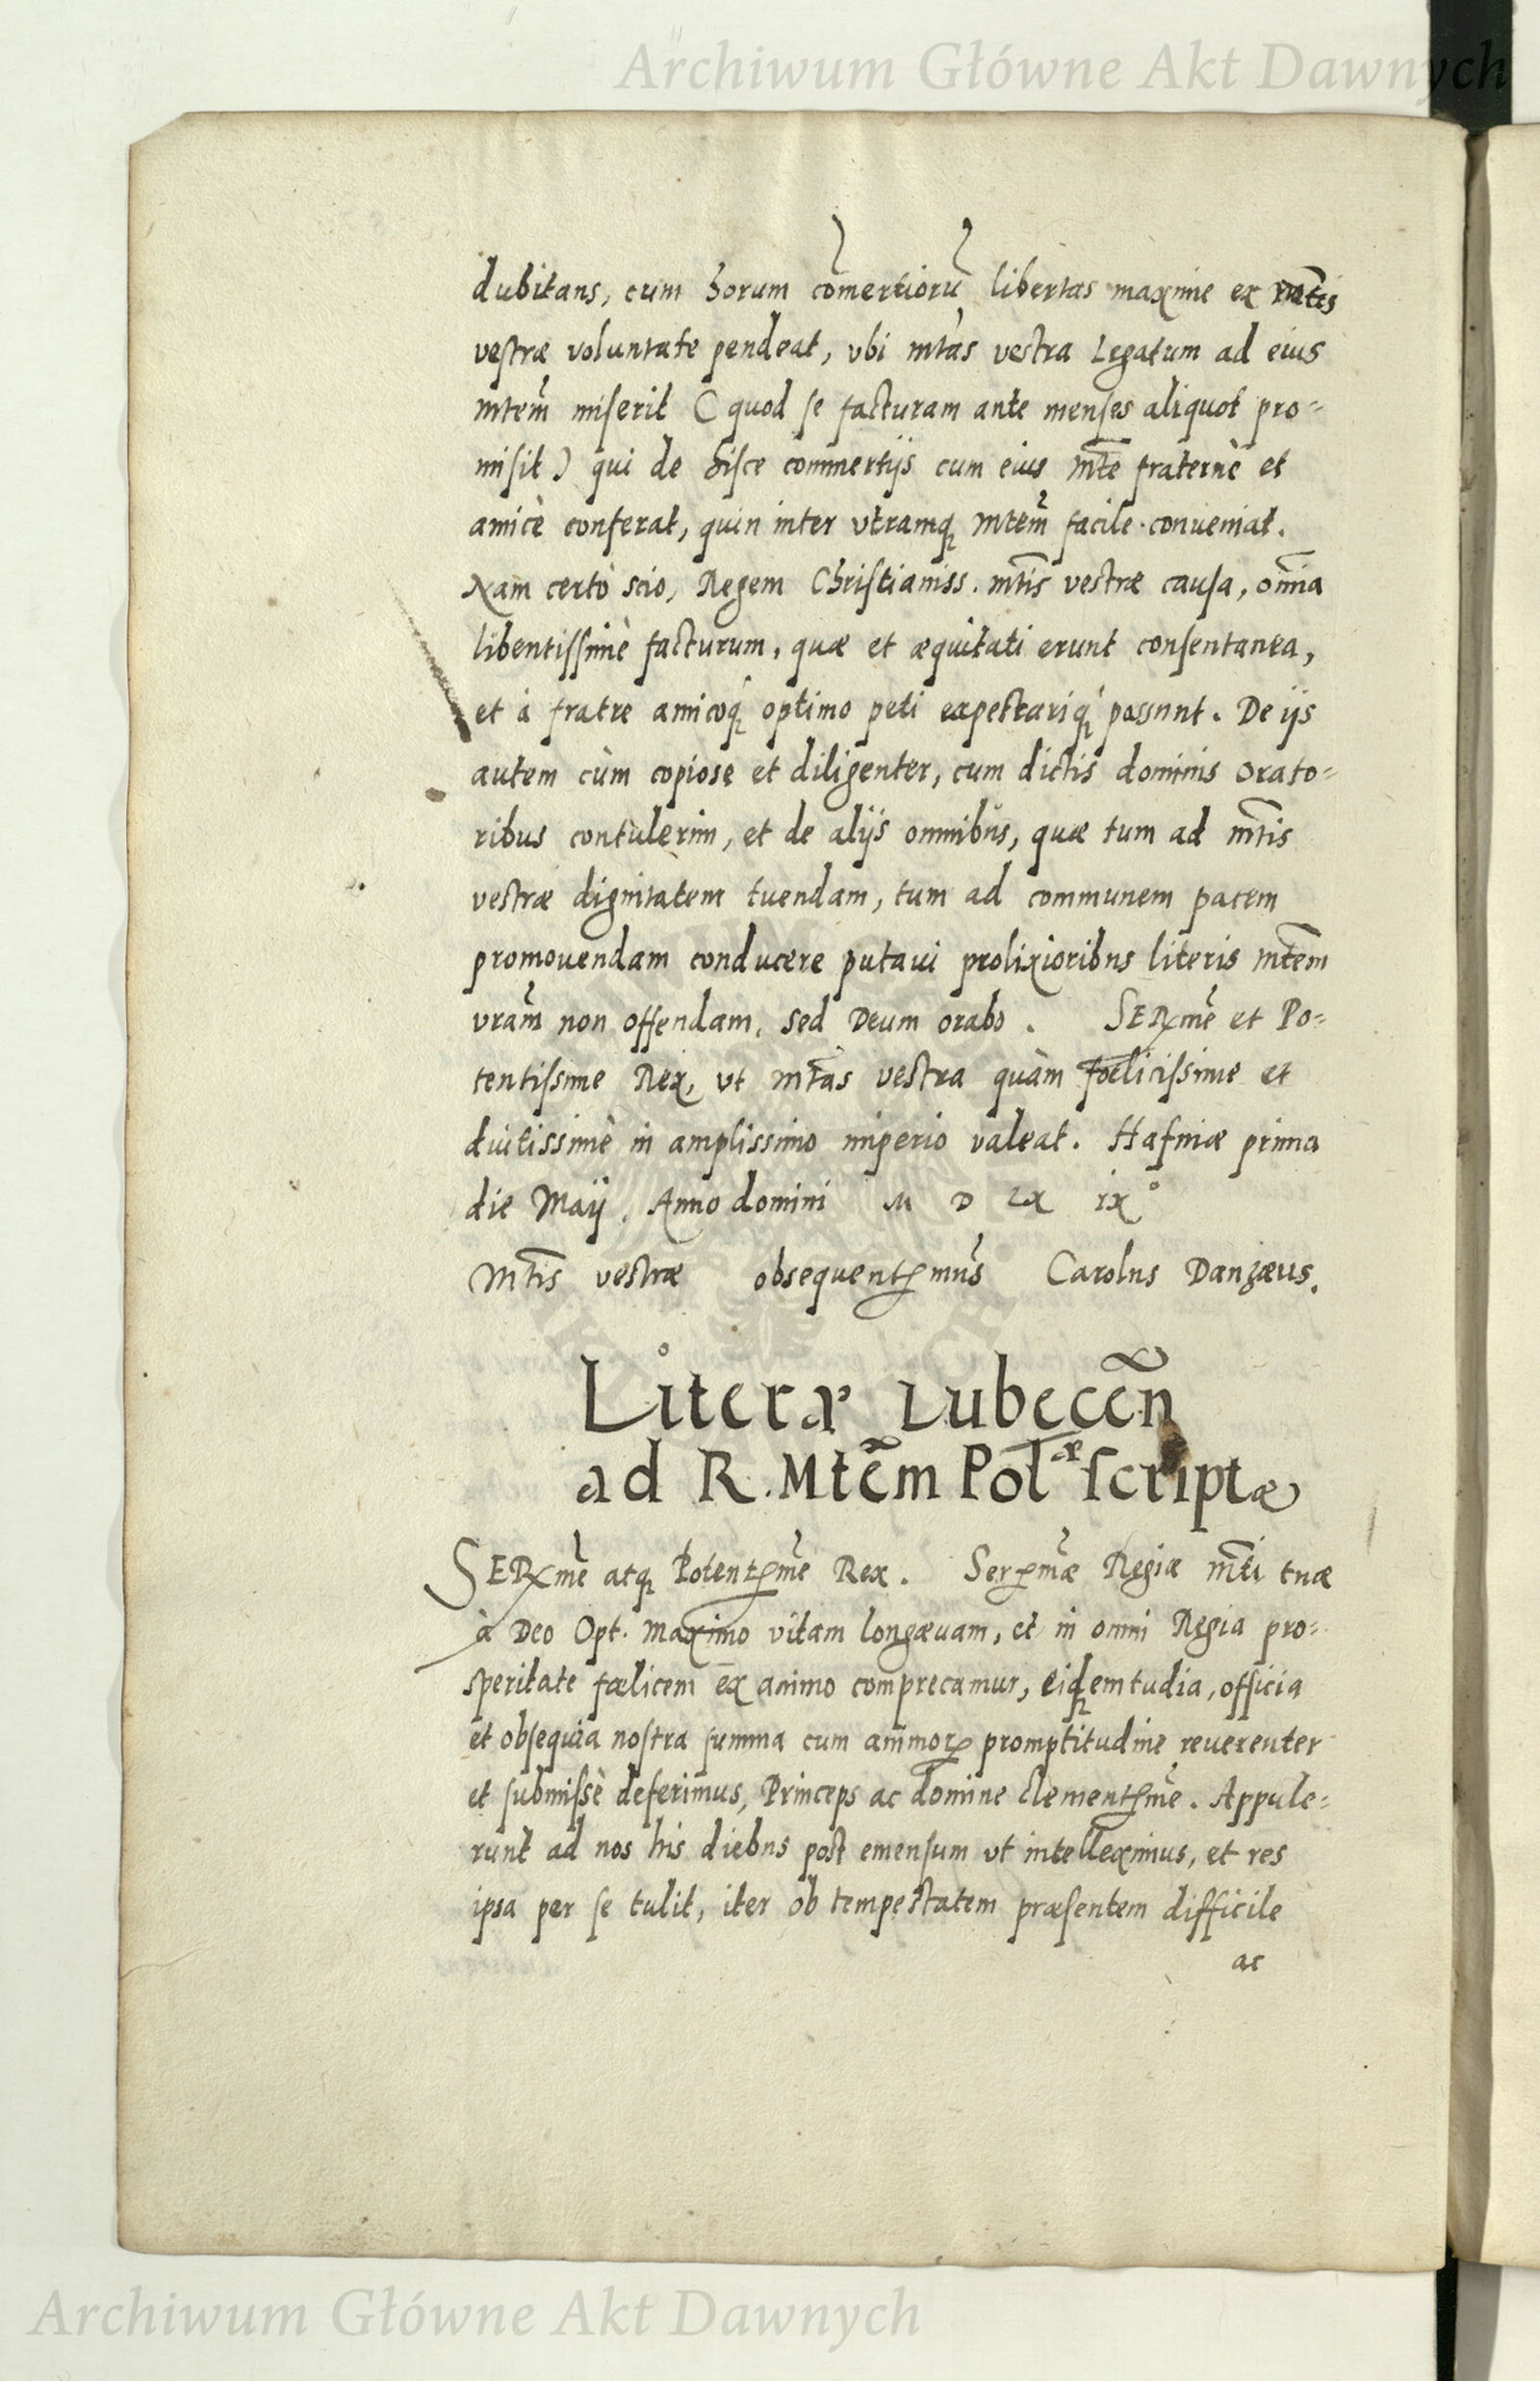 Archiwum Główne Akt Dawnych
dubitans, cum horum com̃ertiorũ libertas maxime ex mtis
vestræ voluntate pendeat, vbi mtas vestra Legatum ad eius
mtem̃ miserit ( quod se facturam ante menses aliquot pro=
misit ) qui de hisce commertijs cum eius mte fraternè et
amicè conferat, quin inter vtramq mtem̃ facile conueniat.
Nam certò scio, Regem Christianiss. mtis vestræ causa, om̃ia
libentissimè facturum, quæ et æquitati erunt consentanea,
et à fratre amicoq optimo peti expectariq possunt. De ijs
autem cùm copiose et diligenter, cum dictis dominis orato=
ribus contulerim, et de alijs omnibus, quæ tum ad mtis
vestræ dignitatem tuendam, tum ad communem pacem
promouendam conducere putaui prolixioribus literis mtem
vram̃ non offendam, sed Deum orabo . SERme et Po=
tentissime Rex, vt mtas vestra quàm fœlicissime et
diutissimè in amplissimo imperio valeat. Hafniæ prima
die Maij. Anno domini M D LX IX°
Mtis vestræ obsequentmus Carolus Danzæus.
Literæ Lubecen̄
ad R. Mtem Polæ scriptæ
SERme atq Potentme Rex. Sermæ Regiæ mti tuæ
à Deo Opt. Maximo vitam longæuam, et in omni Regia pro=
speritate fœlicem ex animo comprecamur, eidemq studia, officia
et obsequia nostra summa cum animor promptitudine reuerenter
et submissè deferimus, Princeps ac domine clementme. Appule=
runt ad nos his diebus post emensum vt intelleximus, et res
ipsa per se tulit, iter ob tempestatem præsentem difficile
ac
Archiwum Główne Akt Dawnych